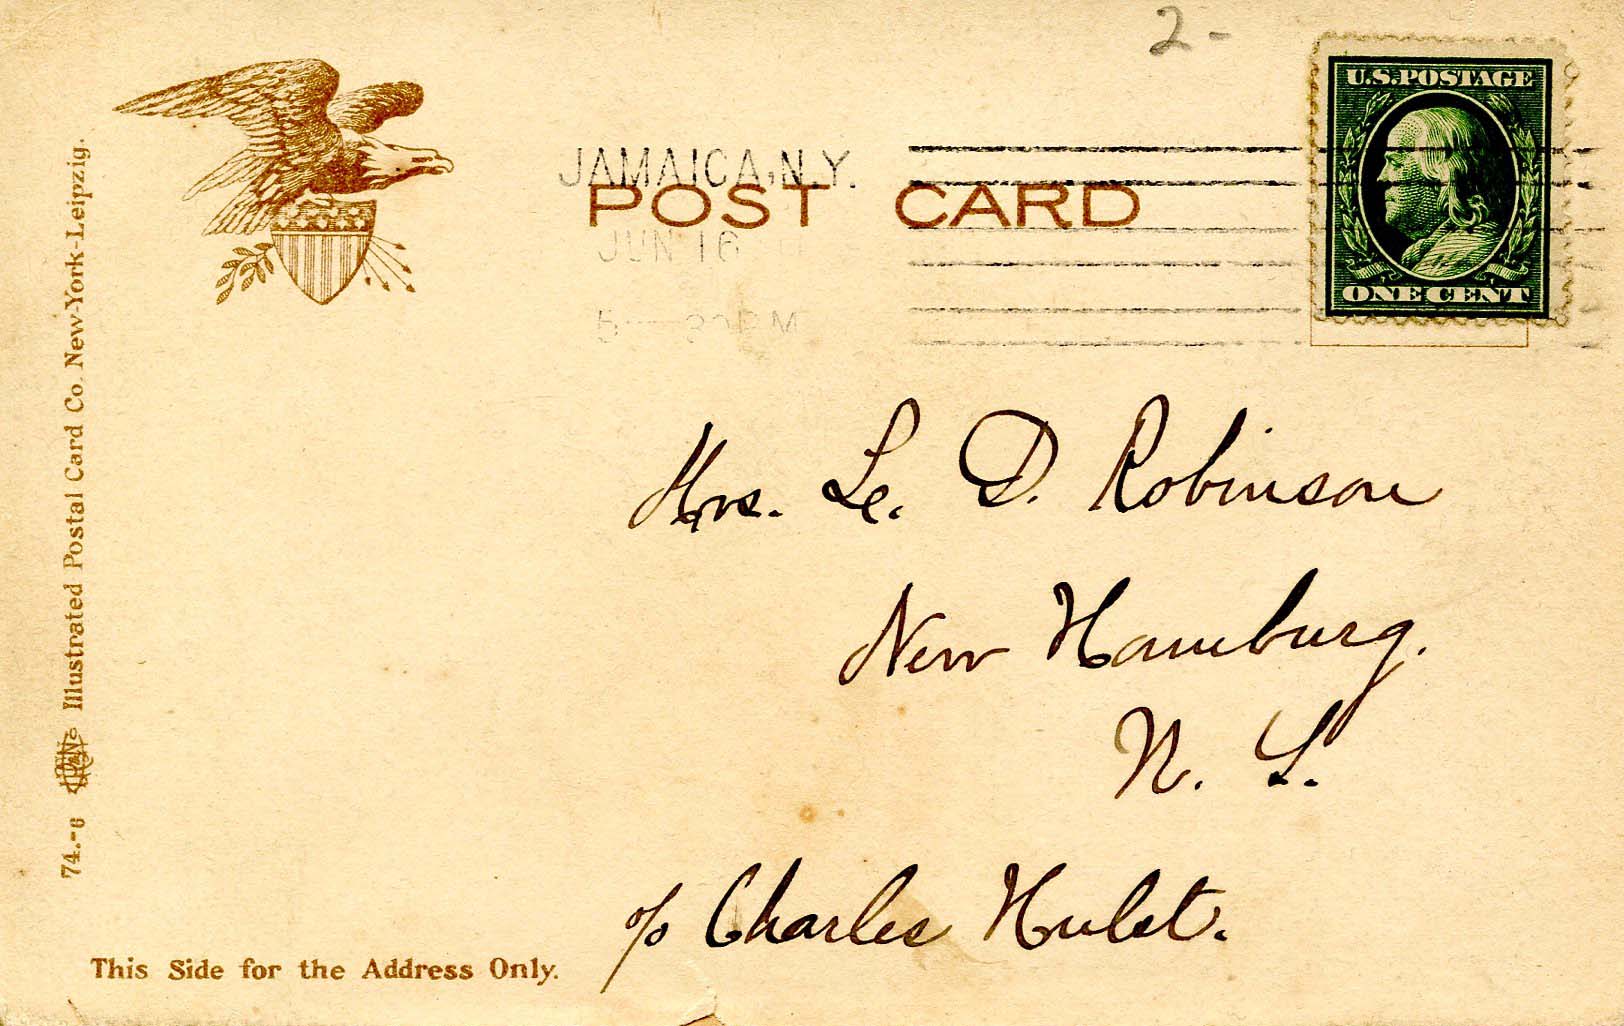 2-
U.S.POSTAGE
ONE CENT
JAMAICA, N.Y.
POST CARD
JUN 16
5 30 PM
Mrs. Le. D. Robinson
New Hamburg.
N. Y.
c/o Charles Hulst.
74.-6 Illustrated Postal Card Co. New-York-Leipzig.
This Side for the Address Only.